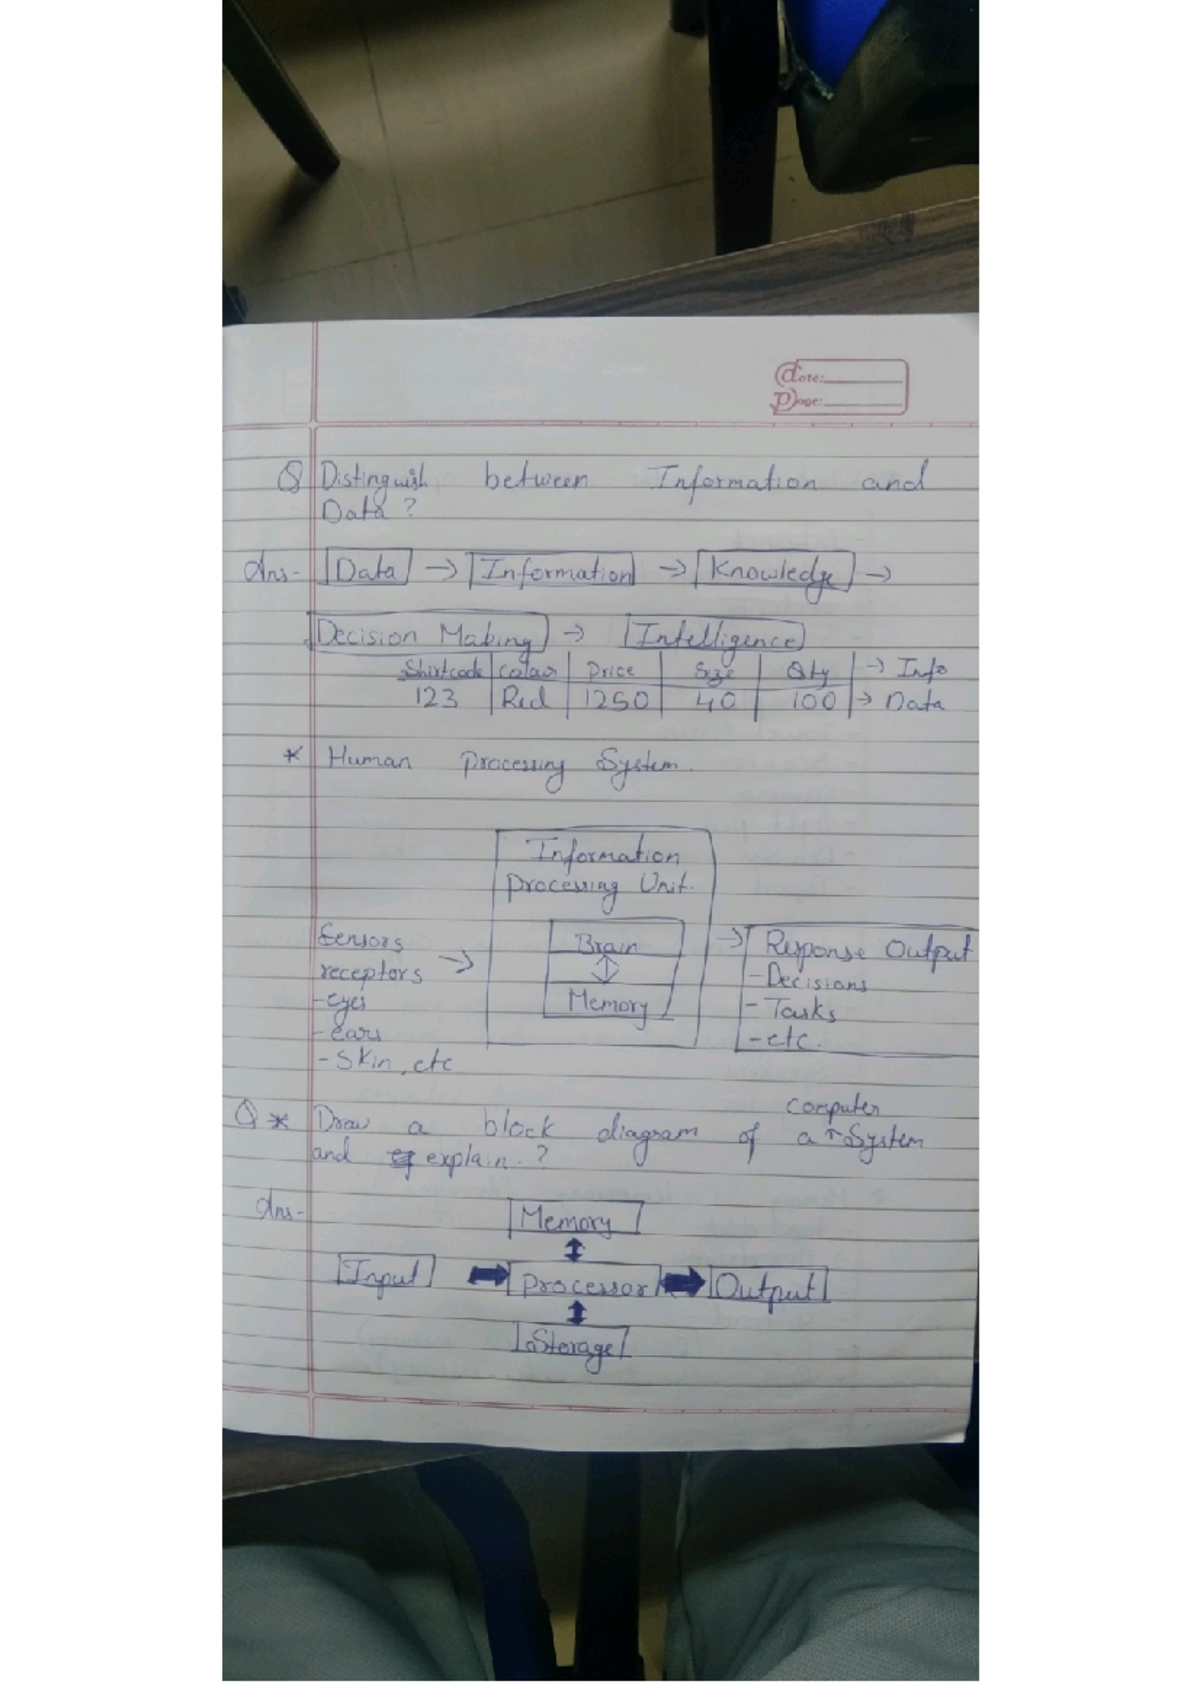 Date:
Page:
Q Distinguish between Information and
Data ?
Ans- Data → Information → Knowledge →
Decision Making → Intelligence
Shirtcode Colour Price Size Qty → Info
123 Red 1250 40 100 → Data
* Human Processing System.
Information
Processing Unit.
Sensors
receptors →
- eyes
- ears
- Skin, etc
Brain
↕
Memory
→ Response Output
- Decisions
- Tasks
- etc.
Q * Draw a block diagram of a ↑ System
computer
and explain. ?
Ans-
Memory
Input Processor Output
Storage